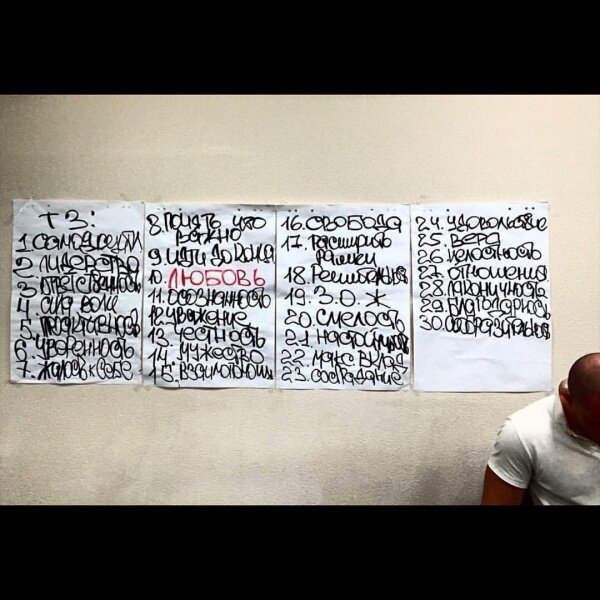 ТЗ:
1. самодисципл
2. лидерство
3. ответственность
4. сила воли
5. продуктивность
6 уверенность
7. жалость к себе
8. понять что
важно
9. идти до конца
10. ЛЮБОВЬ
11. осознанность
12. уважение
13. честность
14. мужество
15.
16. свобода
17. расширить
рамки
18. решительн
19. З.О.Ж
20. смелость
21. настойчив
22. макс вклад
23. сострадание
24. удовольствие
25. вера
26 целостность
27. отношения
28. лаконичность
29. благодарность
30. сообразительн